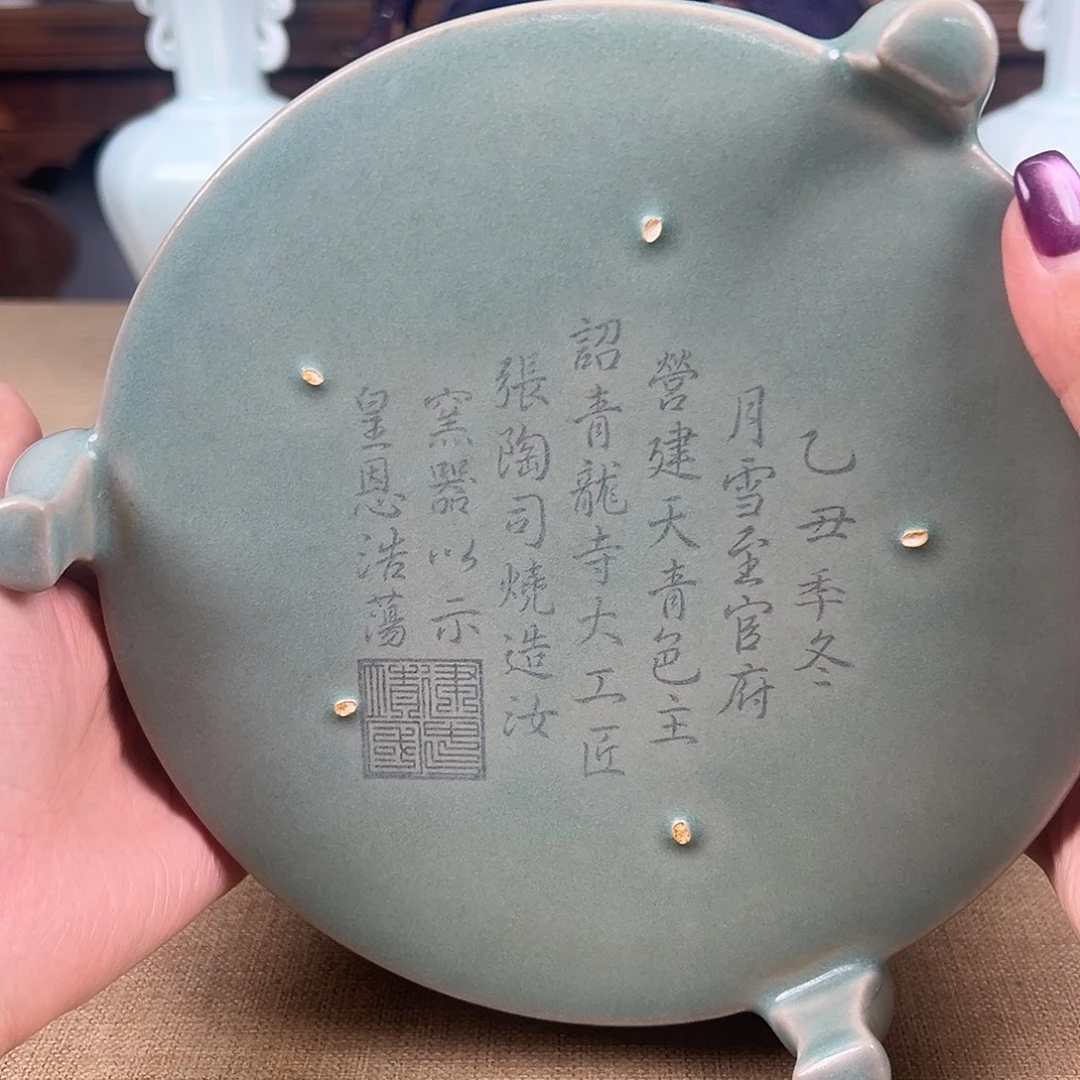 乙丑季冬
月雪至官府
營建天青色主
詔青龍寺大工匠
張陶司燒造汝
窯器以示
皇恩浩蕩